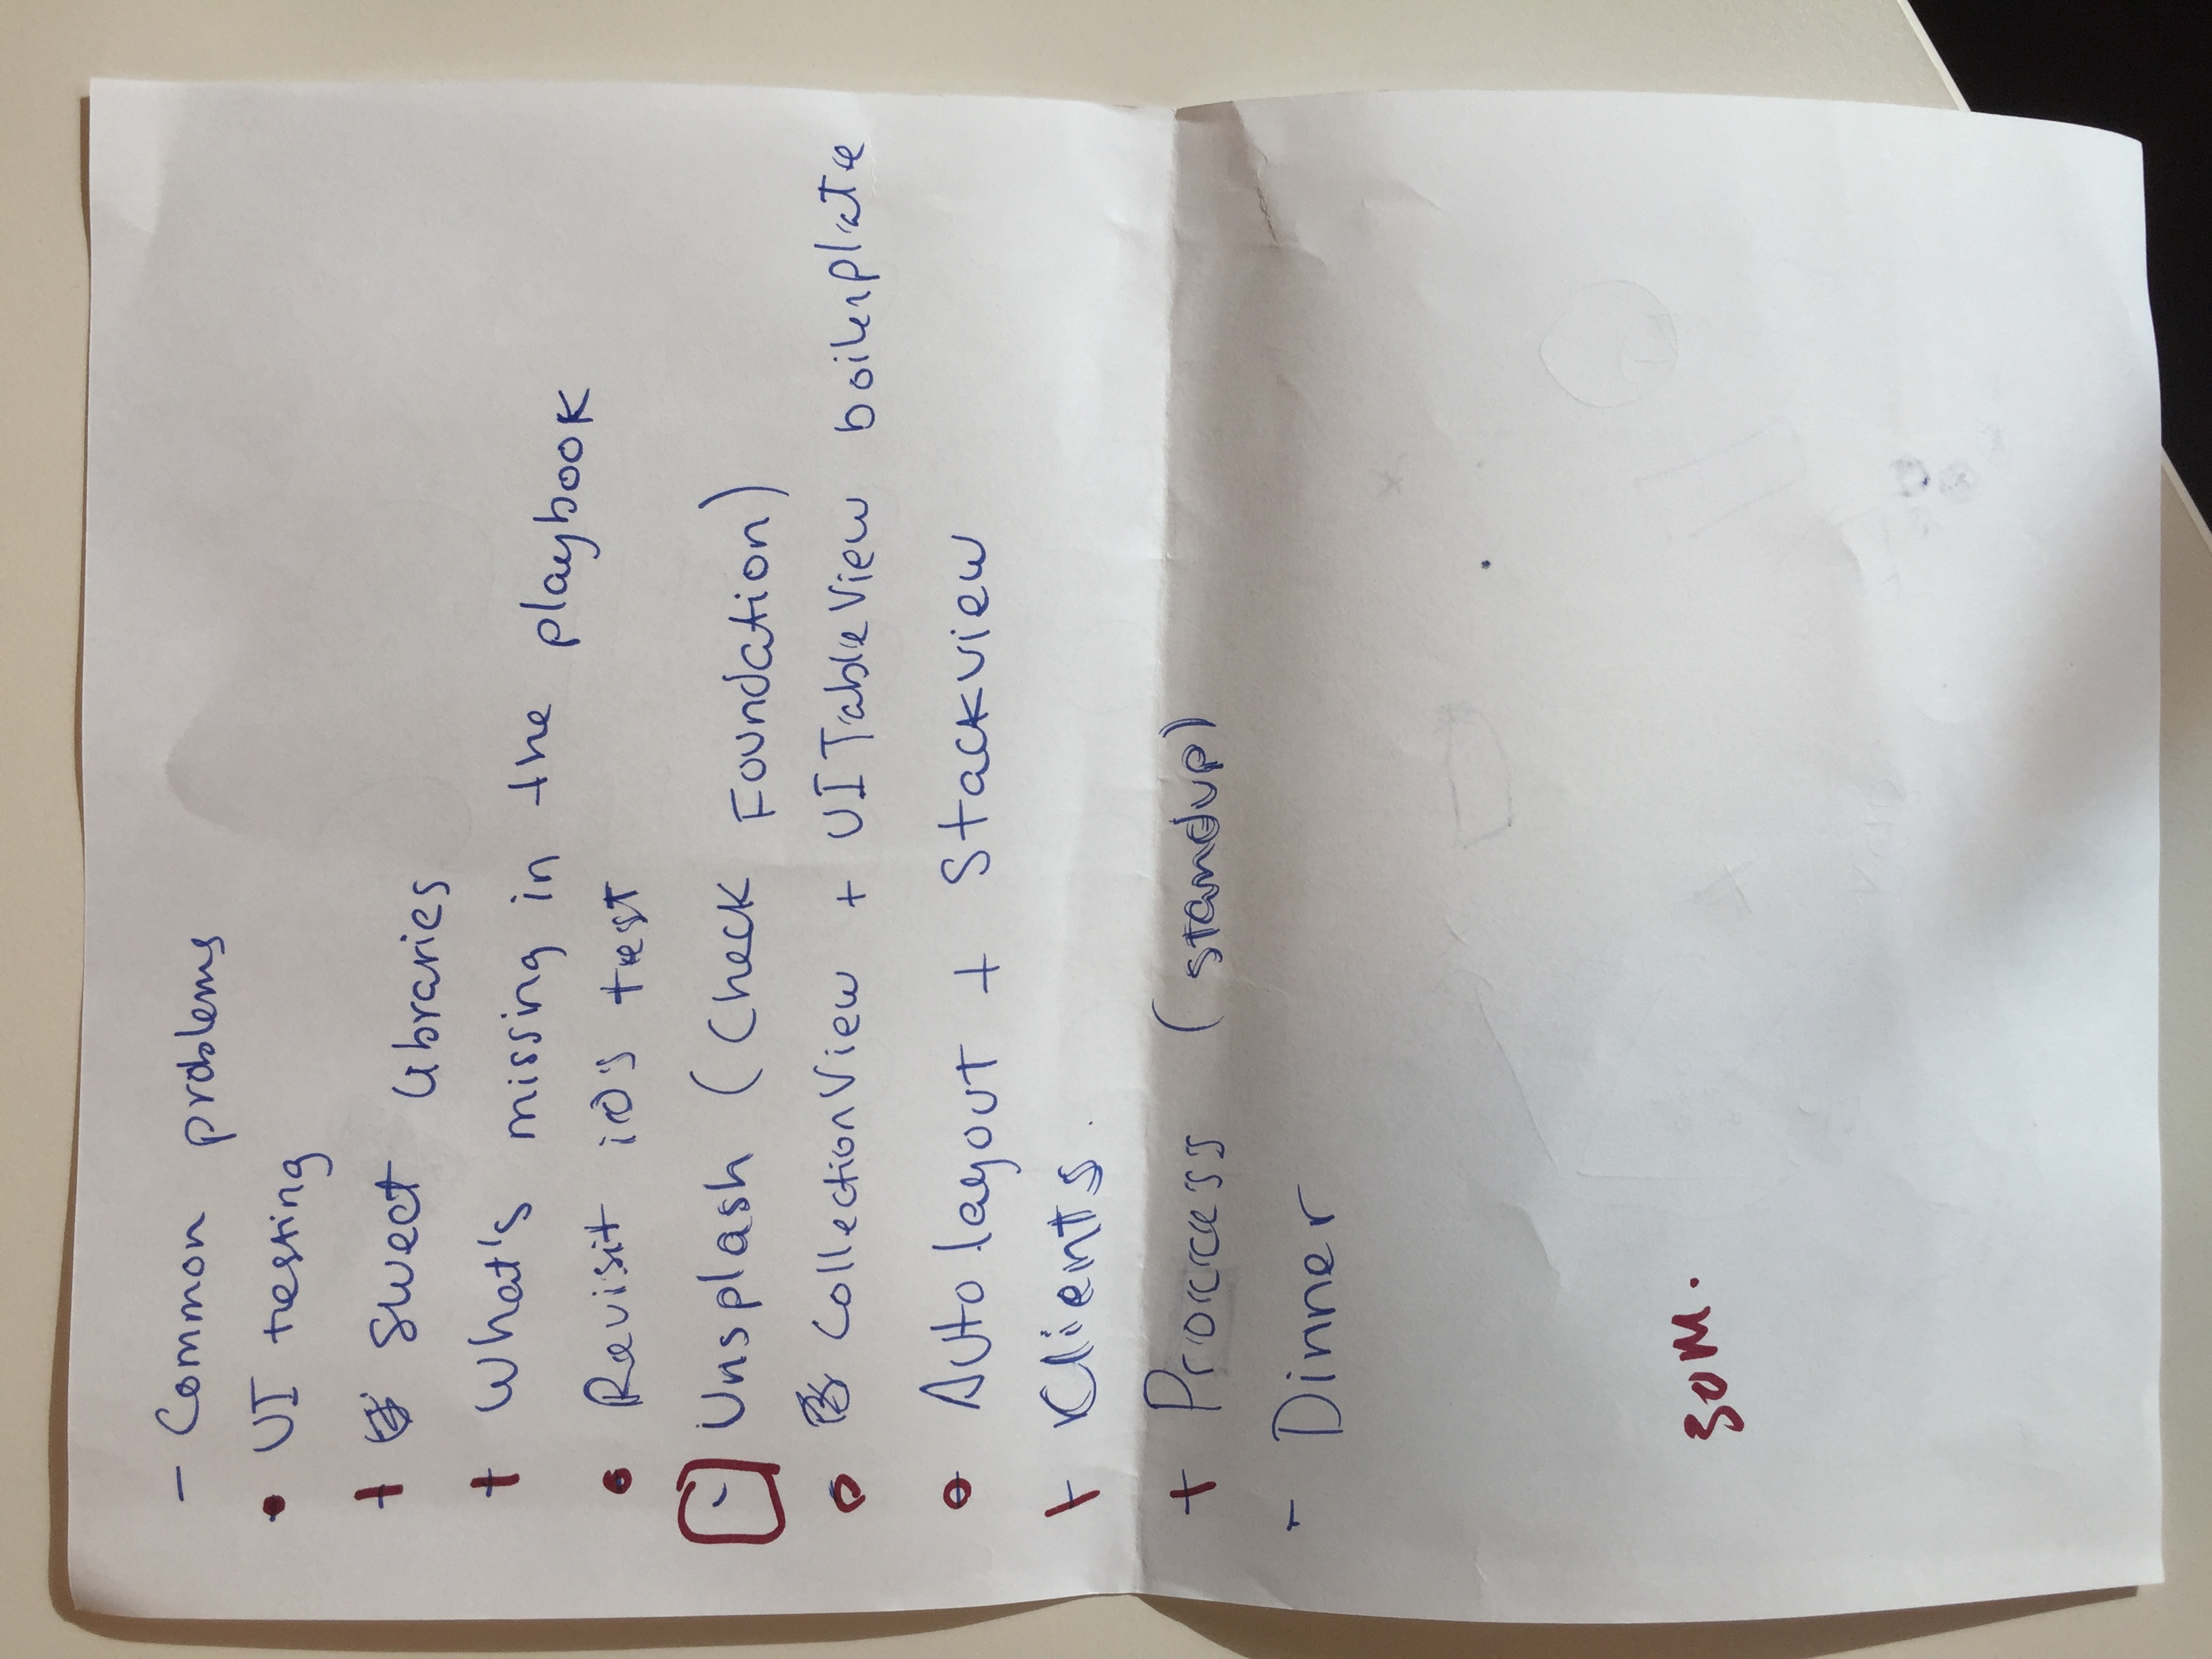 - Common problems
• UI testing
+ Sweet libraries
+ What's missing in the playbook
• Revisit iOS test
- Unsplash (Check Foundation)
o CollectionView + UITableView boilerplate
o Auto layout + Stackview
+ Clients.
+ Proccess (standup)
- Dinner
30M.